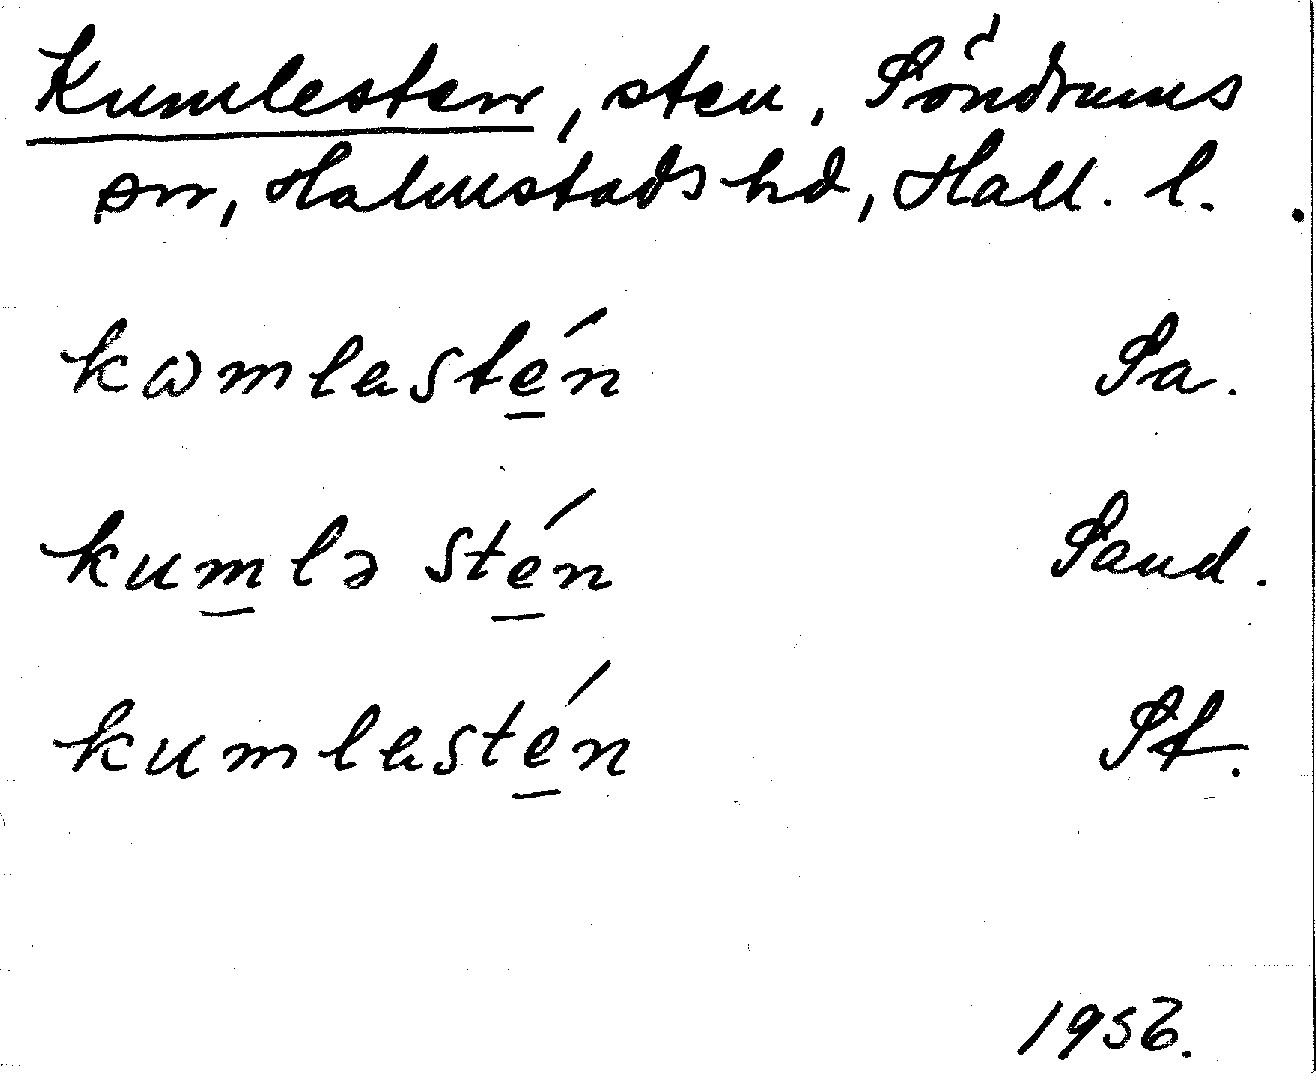 Kumlesten, sten, Söndrums
sn, Halmstads hd, Hall. l.
kωmlastén Sa.
kumlə stén Sand.
kumlastén St.
1956.